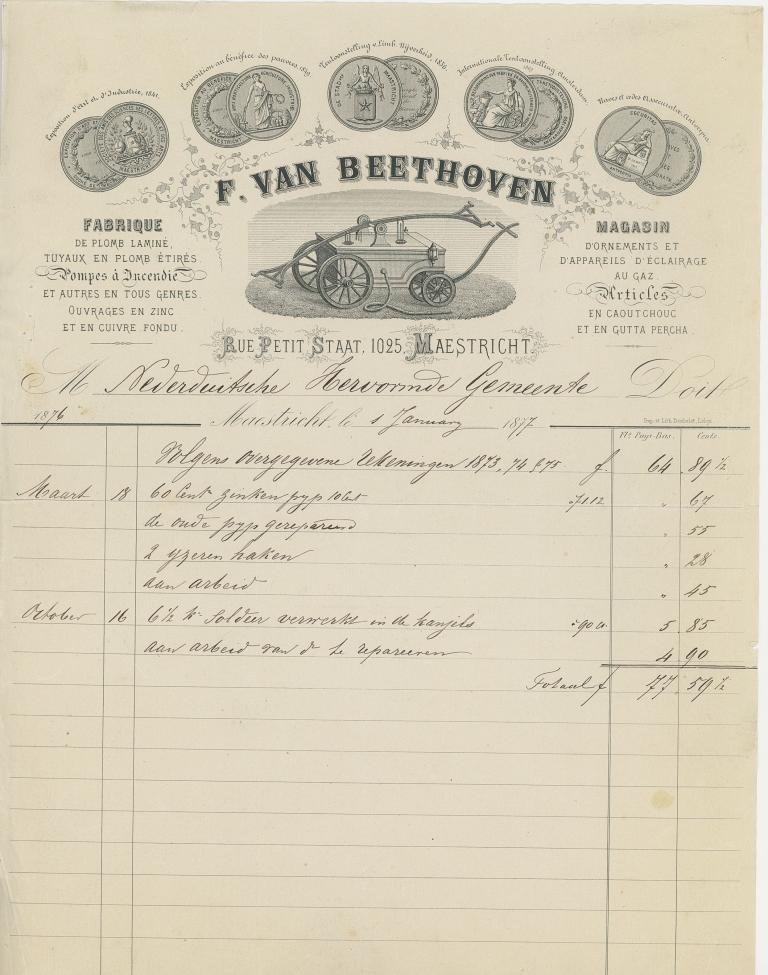 Exposition d'Art et d'Industrie, 1841.
Exposition au bénéfice des pauvres,
Tentoonstelling v. Limb. Nijverheid, 1856
Internationale Tentoonstelling Amsterdam.
MAESTRICHT
DE STAD
MAESTRICHT
SECURITAS
F. VAN BEETHOVEN
FABRIQUE
DE PLOMB LAMINÉ,
TUYAUX EN PLOMB ÉTIRÉS.
Pompes à Incendie
ET AUTRES EN TOUS GENRES.
OUVRAGES EN ZINC
ET EN CUIVRE FONDU.
MAGASIN
D'ORNEMENTS ET
D'APPAREILS D'ÉCLAIRAGE
AU GAZ
Articles
EN CAOUTCHOUC
ET EN GUTTA PERCHA.
RUE PETIT STAAT, 1025, MAESTRICHT.
M Nederduitsche Hervormde Gemeente Doit
1876 Maestricht, le 1 January 1877
Imp. et Lith. Liége
Fls Pays-Bas. Cents.
Volgens overgegevene rekeningen 1873, 74 & 75 f. 64 . 89 1/2
Maart 18 60 Cent zinken pyp 10 Cent 1.12 " 67
de oude pyp gerepareerd " 55
2 yzeren haken " 28
aan arbeid " 45
October 16 6 1/2 Ko Soldeer verwerkt in de kanjels 90 c. 5 . 85
aan arbeid van do te repareeren 4 90
Totaal f 77 . 59 1/2